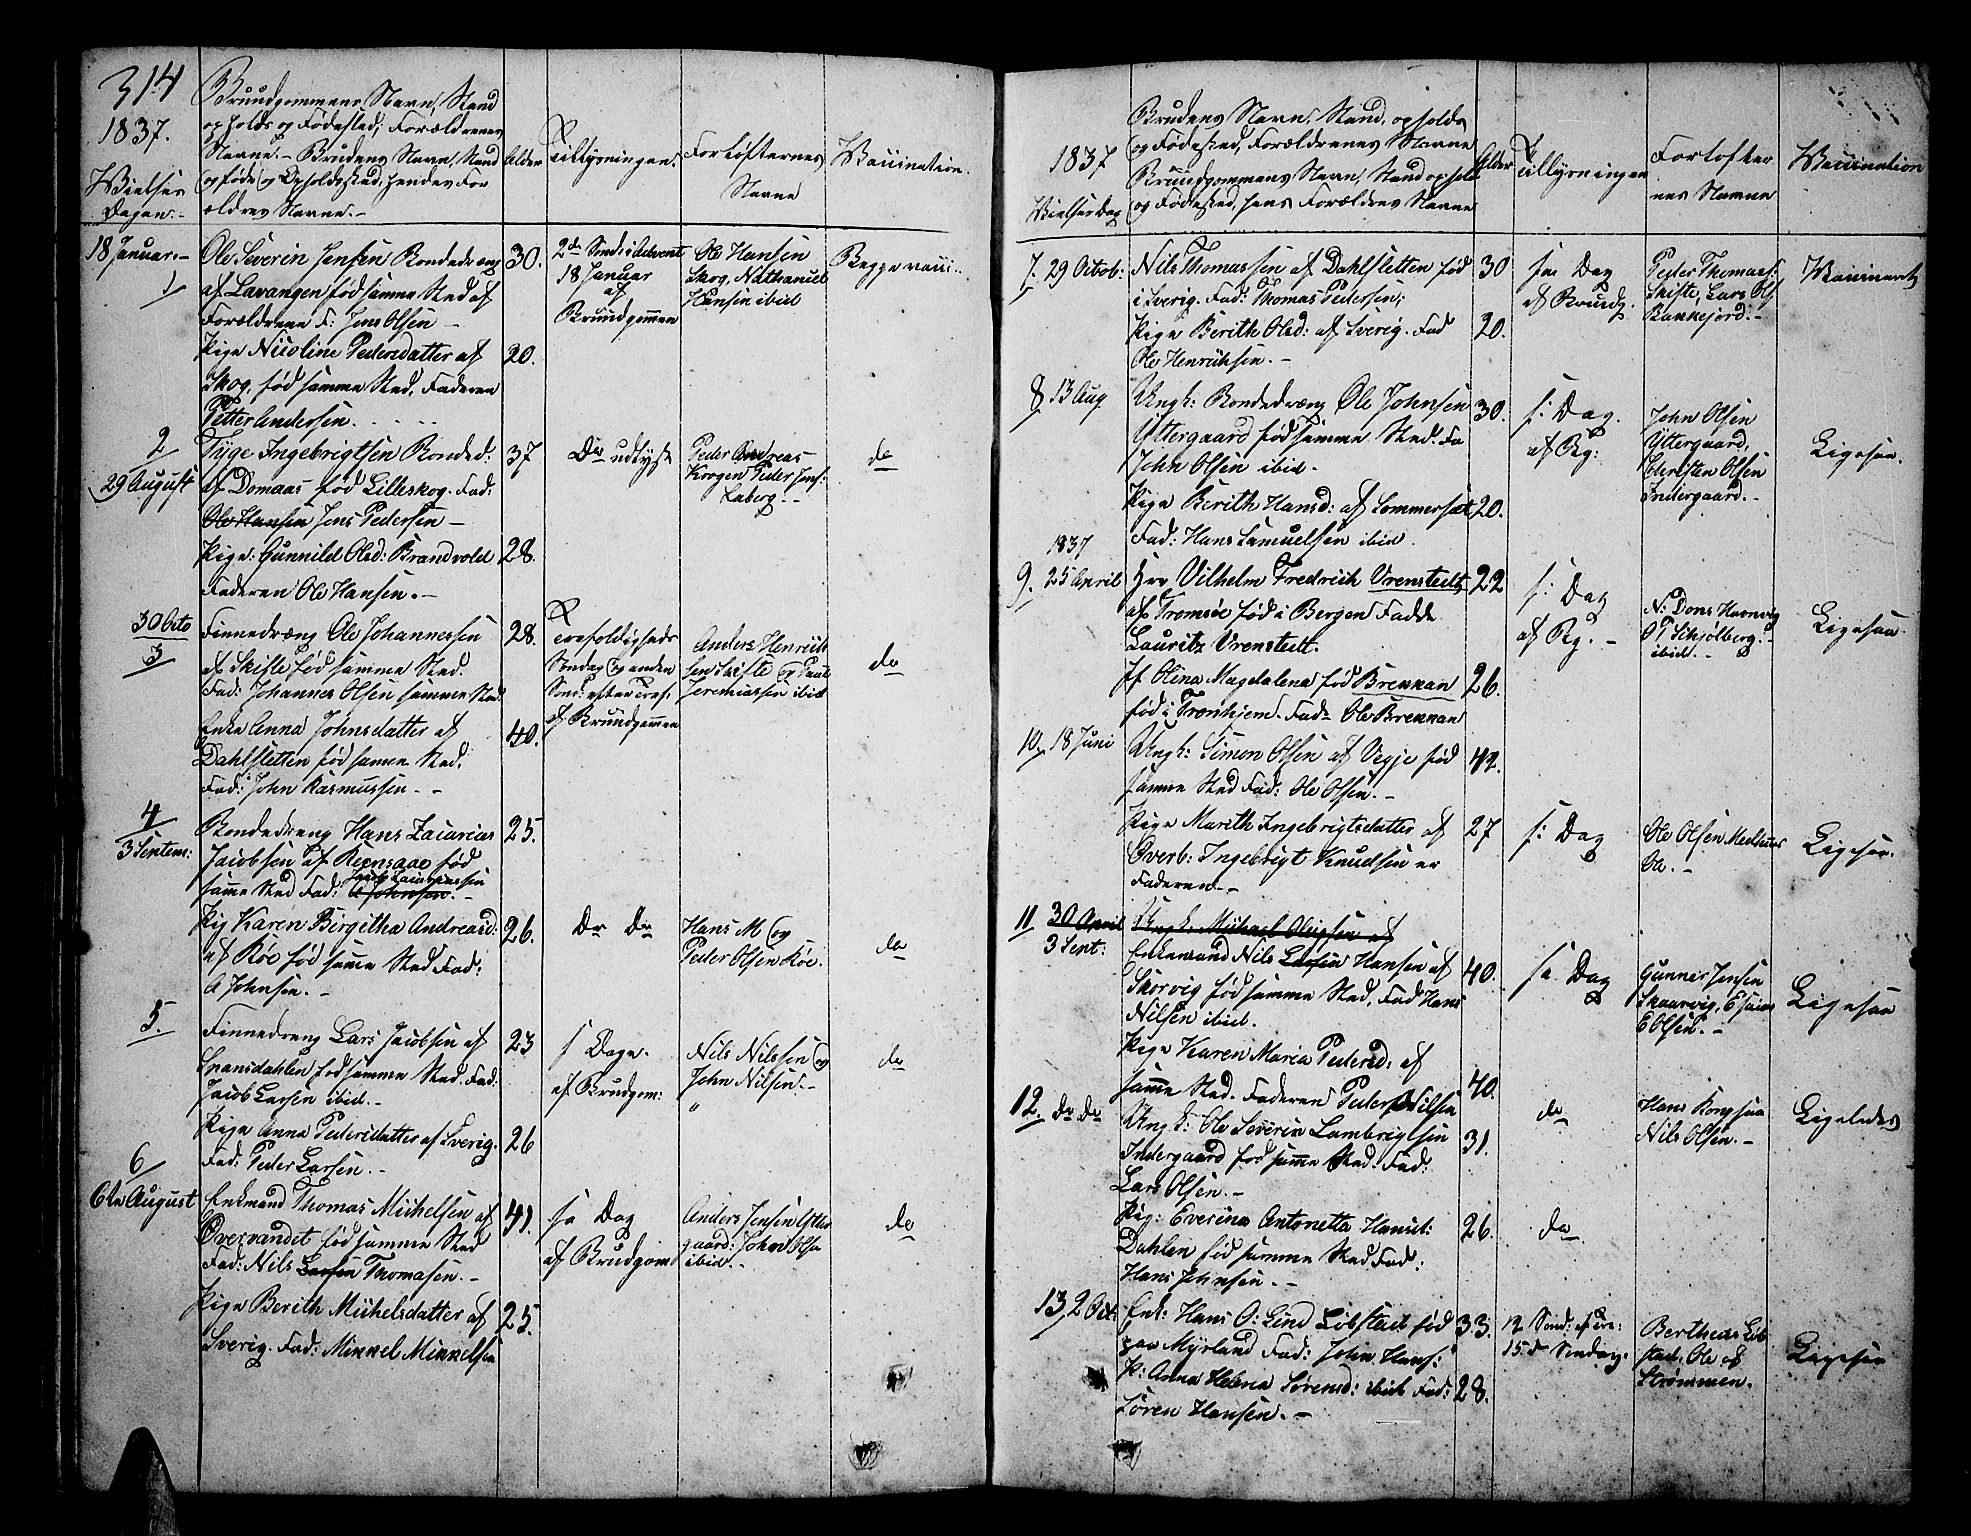 314
1837.
Vielses
Dagen.-
Bruudgommens Navn, Stand
opholds og Fødested, Forældrenes
Navne.- Brudens Navn, Stand
og føde og Opholdssted, hendes For
ældres Navne.-
Alder
Tillysningen.
Forlofternes
Navne
Vaccination.
18 Januar.-
1)
Ole Severin Jensen Bondedræng
af Lavangen fød samme Sted af
Forældrene F: Jens Olsen -
30.
Pige Nicoline Pedersdatter af
Skog, fød samme Sted, Faderen
Petter Andersen.
20.
2de Sønd: i Advent
18 Januar
af
Brudgommen
Ole Hansen
Skog, Nathanael
Hansen ibid
Begge vacc:.
2
29 August
Tyge Ingebrigtsen Bonded:
af Domaas fød Lilleskog. Fad:
Ole Hansen Jens Pedersen -
37
Pige: Gunnild Olsd: Brandvold
Faderen Ole Hansen.-
28.
Do udlyst
Peder Andreas
Krogen Peder Jens:
Laberg.-
do
30 Octo
3
Finnedræng Ole Johannessen
af Skifte fød samme Sted.
Fad: Johannes Olsen samme Sted
28.
Enke Anna Johnsdatter af
Dahlsletten fød samme Sted.
Fad: John Rasmussen - -
40.
Trefoldigheds
Søndag og anden
Sønd: efter Tref:
af Bruudgommen
Anders Henrik
sen Skifte og Paul
Jeremiassen ibid
do
4
3 Septem:
Bondedreng Hans Zacarias
Jacobsen af Reensaae fød
samme Sted Fad: A Johnsen.-
Jacob Zacariassen
25.
Pig Karen Birgitha Andreasd:
af Røe fød samme Sted Fad:
A Johnsen.-
26.
Do Do
Hans M og
Peder Olsen Røe.
do
5.
Finnedreng Lars Jacobsen af
Spansdahlen fød samme Sted. Fad.
Jacob Larsen ibid.-
23
Pige Anna Pedersdatter af Sverig.
Fad: Peder Larsen.-
26
s Dage.
af Brudgom:
Nils Nilssen og
John Nilsen.-
"
do
6
6te August
Enkemand Thomas Michelsen af
Øvervandet fød samme Sted
Fad: Nils Larsen Thomasen.-
41.
Pige Berith Michelsdatter af
Sverig. Fad: Mikkel Mikkelsen
25.
sa Dag
af Brudgom
Anders Jensen Ytter
gaard: John Olsen
ibid.-
do
1837
Vielses Dag
Brudens Navn, Stand, opholds
og Fødested, Forældrenes Navne
Bruudgommens Navn, Stand opholds
og Fødested, hans Forældres Navne
Alder
Tillysningen
Forlofter
nes Navne
Vaccination
7. 29 Octob.
Nils Thomassen af Dahlsletten fød
i Sverig. Fad: Thomas Pedersen;
30
Pige Berith Olsd: af Sverig. Fad
Ole Henriksen.-
20.
sa Dag
af Bruudg.
Peder Thomas:
Skifte, Lars Ols
Bakkejord.-
Vaccinerte
8 13 Aug
Ungk: Bondedræng Ole Johnsen
Yttergaard fød samme Sted. Fa
John Olsen ibid.
30.
Pige Berith Hansd: af Sommersæt
Fad: Hans Samuelsen ibid.
20.
s: Dag.
af Bg:
John Olsen
Yttergaard,
Olsen
Indergaard.-
Ligesaa.
1837
9. 25 April
Hrr Vilhelm Fredrich Vrenstedt
af Tromsøe fød i Bergen Fad:
Lauritz Vrenstedt.
22
Jf Olina Magdalena fød Brekkan
fød i Tronhjem. Fad: Ole Brekkan
26.
s: Dag
af Bg.-
N: Dons Havnvig
O T Schjølberg.-
ibid.-
Ligesaa.
10. 18 Juni
Ungk: Simon Olsen af Vegje fød
samme Sted Fad: Ole Olsen.-
42.
Pige Marith Ingebrigtsdatter af
Overb: Ingebrigt Knudsen er
Faderen.-
27
s: Dag
Ole Olsen
Ole.-
Ligesaa.
11 30 April
3 Sept:
Ungk. Michael Olsen af
Enkemand Nils Larsen Hansen af
Skorvig fød samme Sted, Fad Hans
Nilsen ibid.
40.
Pige Karen Maria Pedersd: af
samme Sted. Faderen Peder Nilsen
40.
sa Dag
Gunner Jensen
Skaarvig, Esaias
E Olsen.-
Ligesaa
12. Do Do
Ung K: Ole Severin Lambrigtsen
Indergaard fød samme Sted. Fad:
Lars Olsen.-
31.
Pig: Everina Antonetta Hansd:
Dahlen fød samme Sted Fad:
Hans Johnsen.-
26.
do
do.
Hans
Nils Olsen.-
Ligeledes
13, 2 Oct.
Enk: Hans O: Lind Løbstad fød
paa Myrland Fad: John Hans:
33.
P: Anna Helena Sørensd: ibid Fad:
Søren Hansen.-
28.
12 Sønd: af Tre:
15de Søndag.
Bertheus Løb
stad, Ole af
Strømmen.
Ligesaa